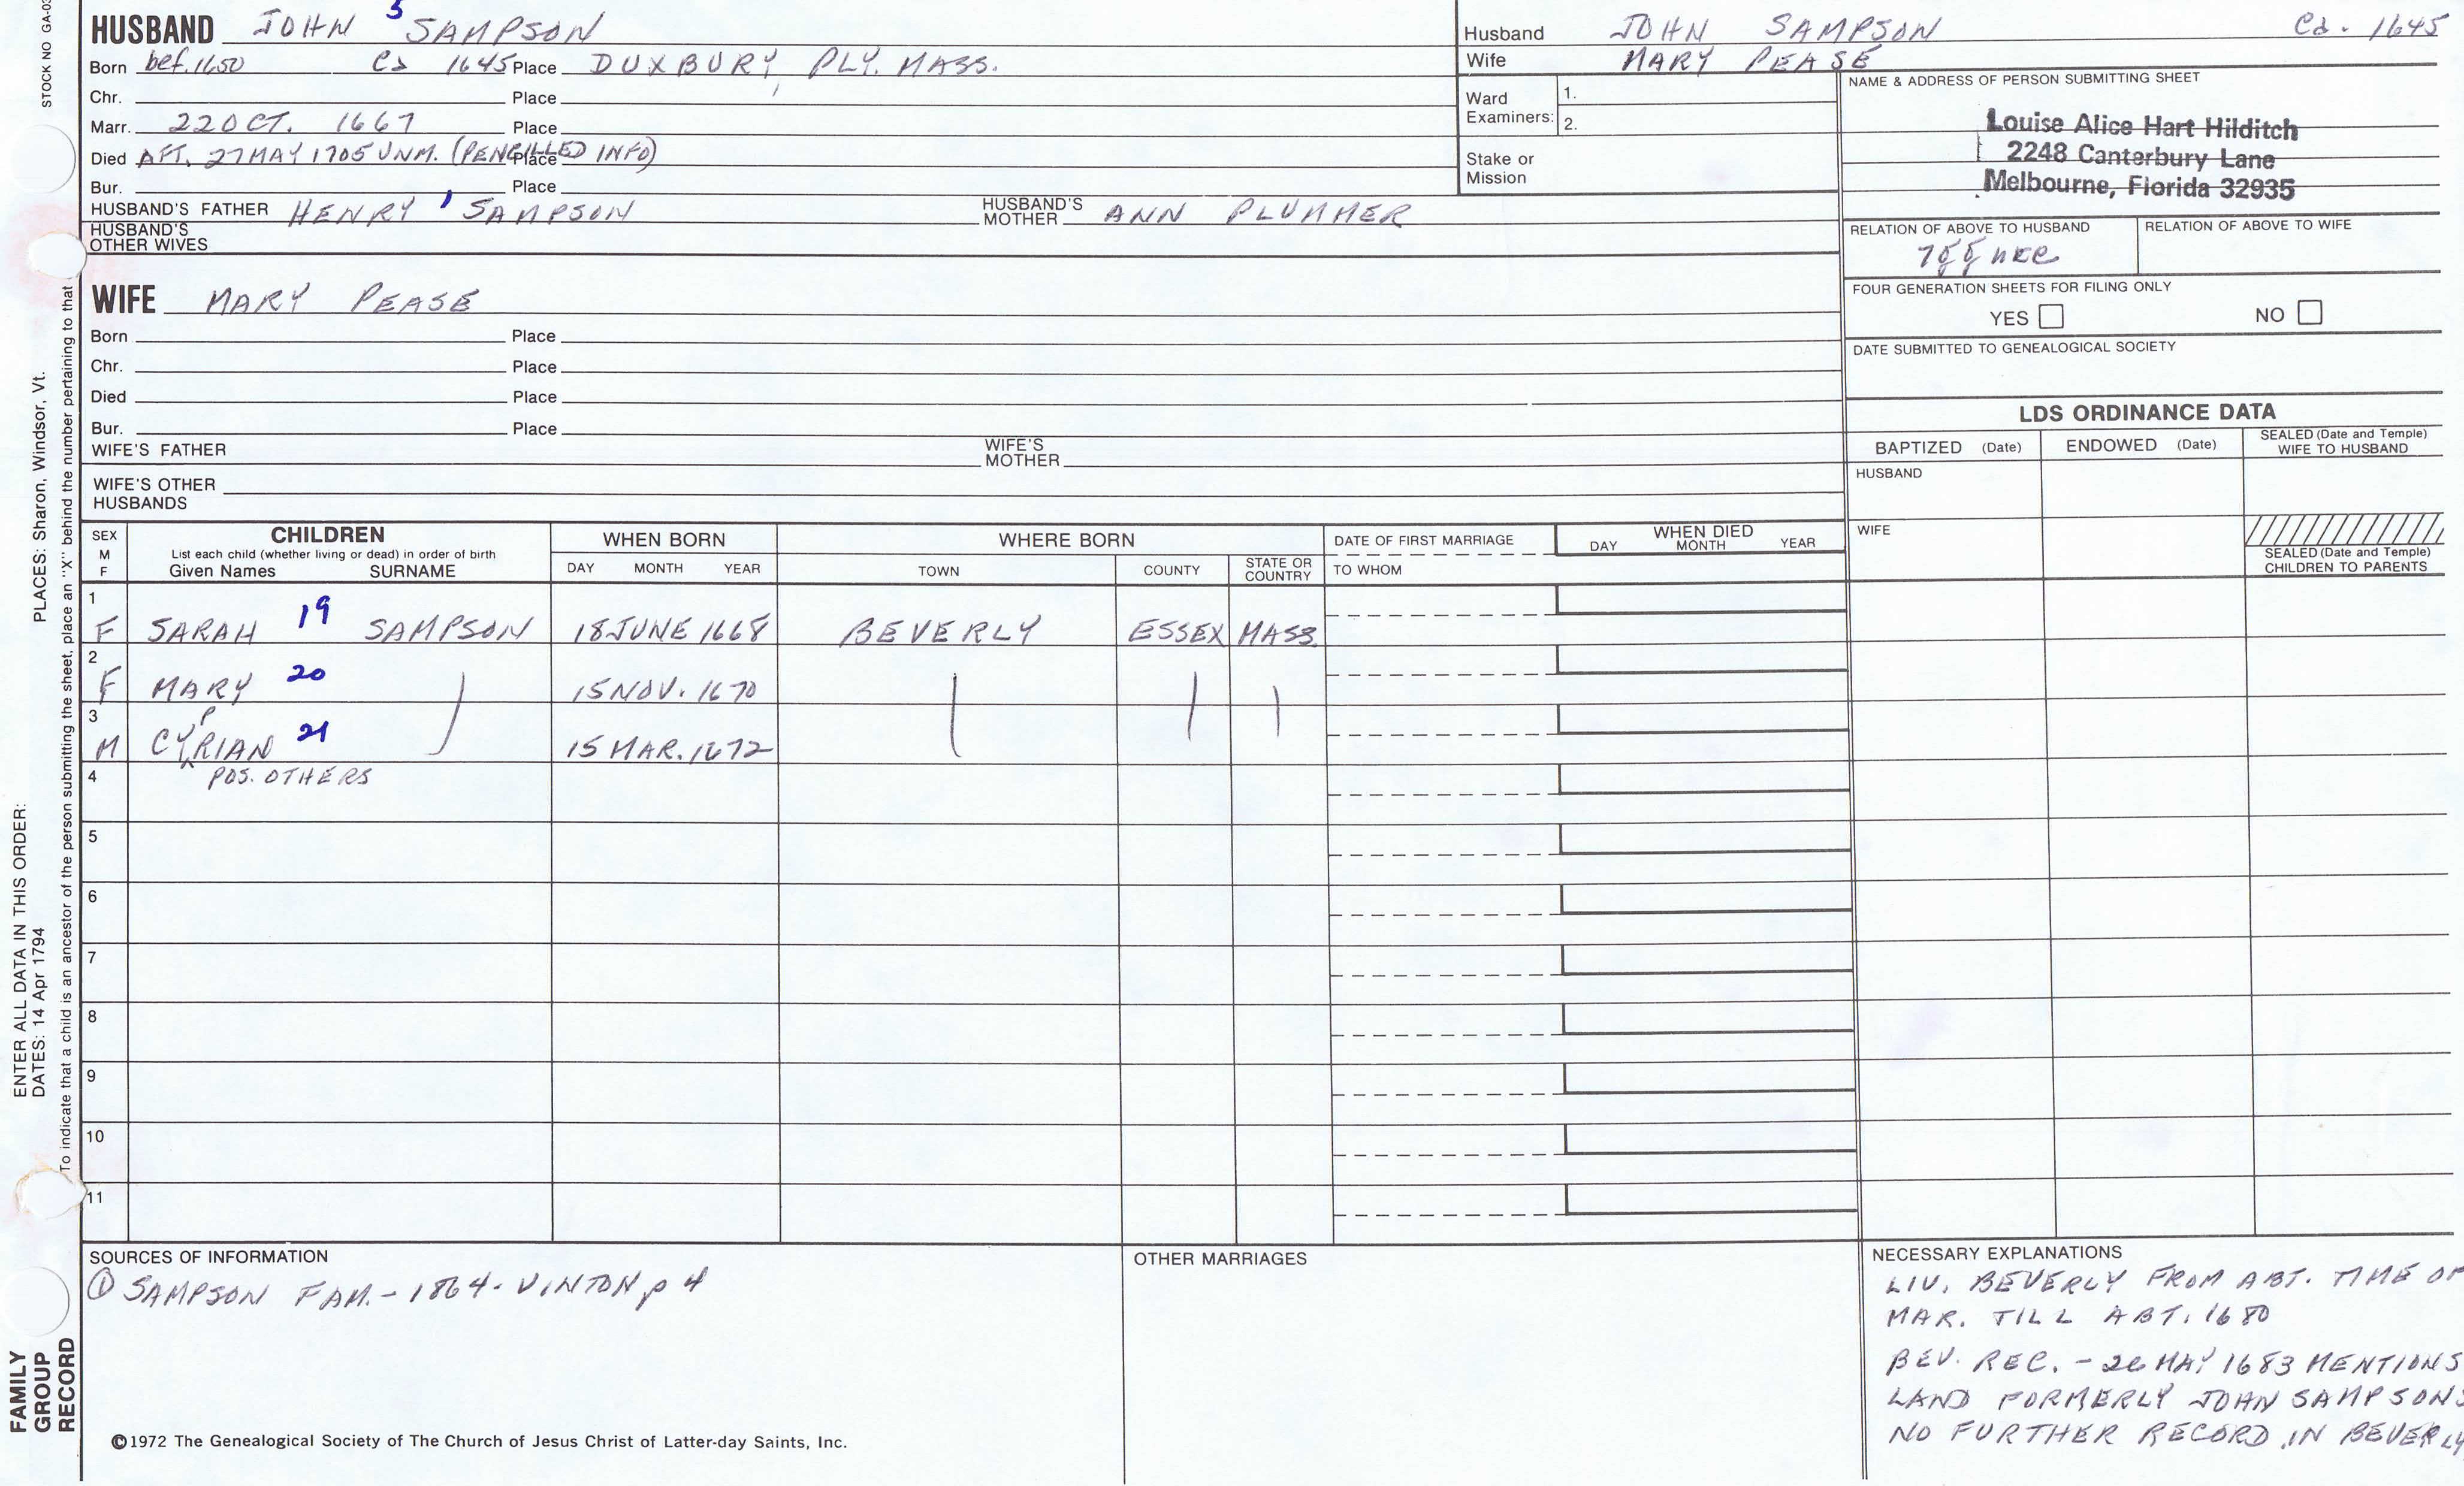 STOCK NO GA-03
HUSBAND JOHN 5 SAMPSON
Born bef. 1650 Ca 1645 Place DUXBURY, PLY. MASS.
Chr. Place
Marr. 22 OCT. 1667 Place
Died AFT. 27 MAY 1705 UNM. (PENCILLED INFO) Place
Bur. Place
HUSBAND'S FATHER HENRY 1 SAMPSON HUSBAND'S MOTHER ANN PLUMMER
HUSBAND'S OTHER WIVES
Husband JOHN SAMPSON Ca. 1645
Wife MARY PEASE
Ward Examiners: 1.
2.
Stake or Mission
NAME & ADDRESS OF PERSON SUBMITTING SHEET
Louise Alice Hart Hilditch
2248 Canterbury Lane
Melbourne, Florida 32935
RELATION OF ABOVE TO HUSBAND RELATION OF ABOVE TO WIFE
7
FOUR GENERATION SHEETS FOR FILING ONLY
YES NO
DATE SUBMITTED TO GENEALOGICAL SOCIETY
WIFE MARY PEASE
Born Place
Chr. Place
Died Place
Bur. Place
WIFE'S FATHER WIFE'S MOTHER
WIFE'S OTHER HUSBANDS
LDS ORDINANCE DATA
BAPTIZED (Date) ENDOWED (Date) SEALED (Date and Temple) WIFE TO HUSBAND
HUSBAND
WIFE
SEALED (Date and Temple) CHILDREN TO PARENTS
SEX M F
CHILDREN
List each child (whether living or dead) in order of birth
Given Names SURNAME
WHEN BORN
DAY MONTH YEAR
WHERE BORN
TOWN COUNTY STATE OR COUNTRY
DATE OF FIRST MARRIAGE
TO WHOM
WHEN DIED
DAY MONTH YEAR
1 F SARAH 19 SAMPSON 18 JUNE 1668 BEVERLY ESSEX MASS.
2 F MARY 20 15 NOV. 1670
3 M CYPRIAN 21 15 MAR. 1672
4 POS. OTHERS
5
6
7
8
9
10
11
SOURCES OF INFORMATION
① SAMPSON FAM. - 1864 - VINTON p 4
OTHER MARRIAGES
NECESSARY EXPLANATIONS
LIV. BEVERLY FROM ABT. TIME OF
MAR. TILL ABT. 1680
BEV. REC. - 26 MAY 1683 MENTIONS
LAND FORMERLY JOHN SAMPSONS
NO FURTHER RECORD IN BEVERLY
©1972 The Genealogical Society of The Church of Jesus Christ of Latter-day Saints, Inc.
PLACES: Sharon, Windsor, Vt.
ENTER ALL DATA IN THIS ORDER:
DATES: 14 Apr 1794
To indicate that a child is an ancestor of the person submitting the sheet, place an "X" behind the number pertaining to that
FAMILY
GROUP
RECORD